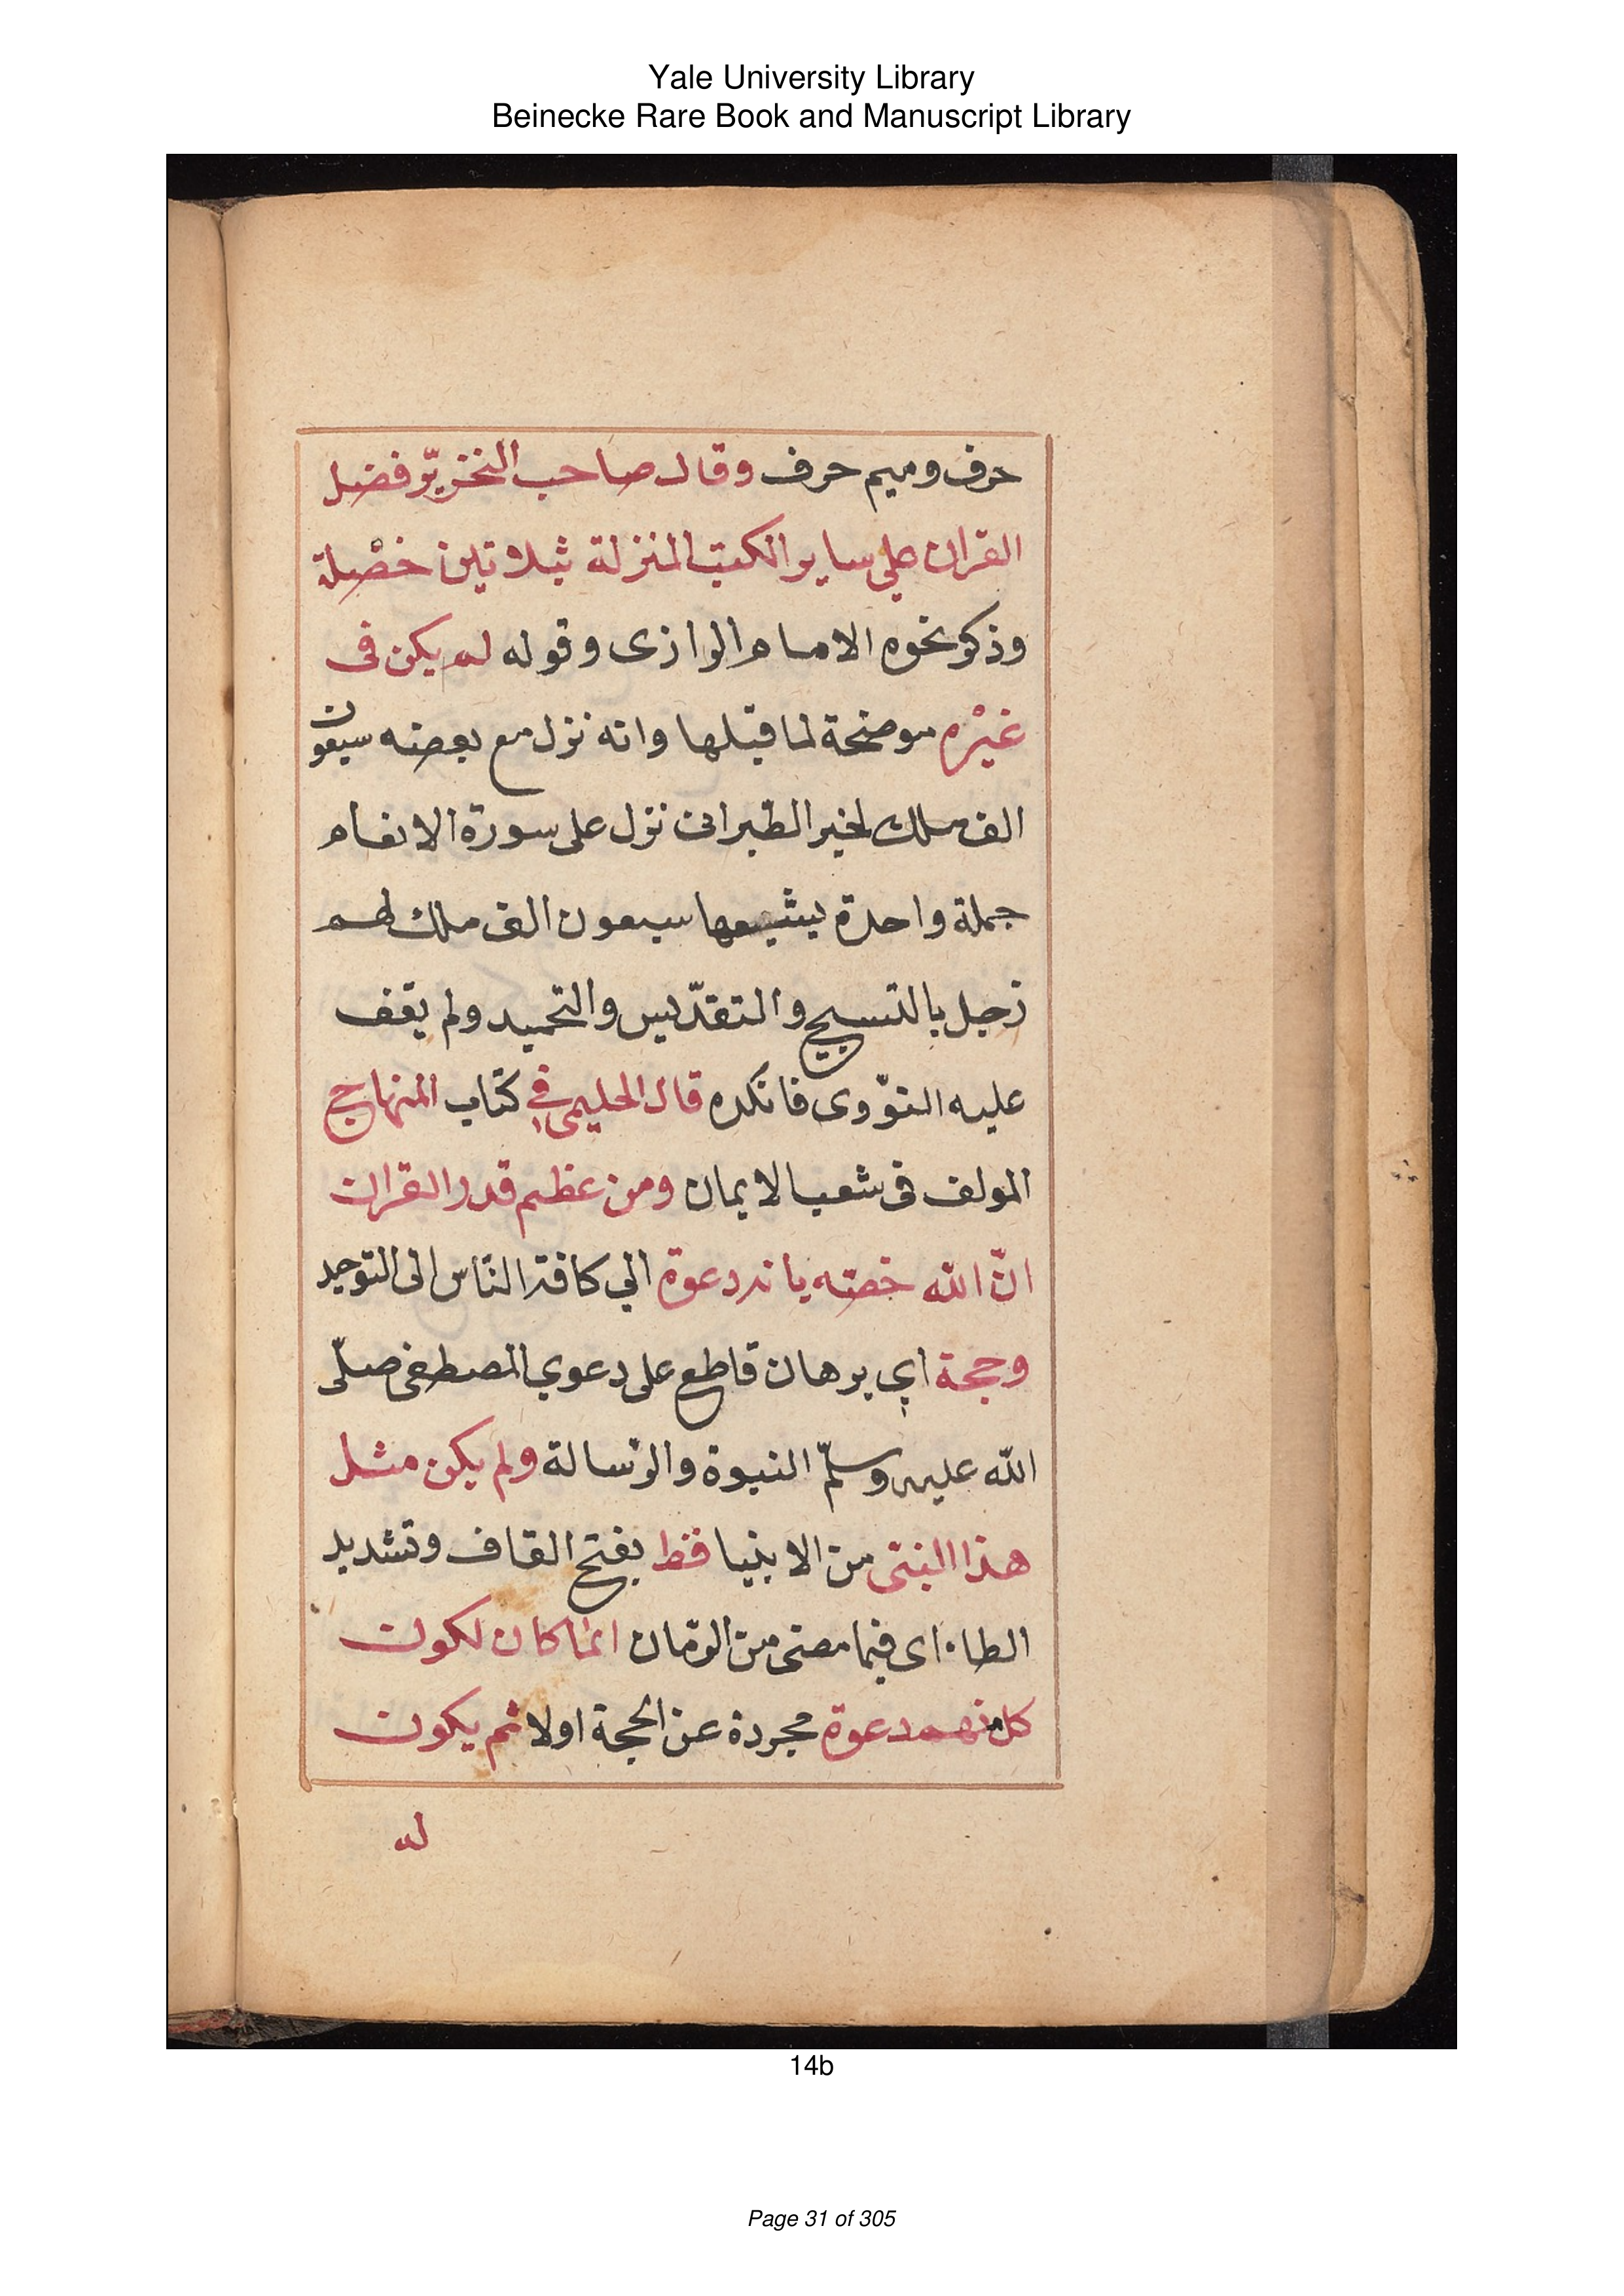 Yale University Library
Beinecke Rare Book and Manuscript Library
حرف وميم حرف وقال صاحب التخريّر فضل
القران علي ساير الكتب المنزلة بثلاثين خصْلة
وذكر نحوه الامام الرازى وقوله لم يكن فى
غيْره موضحة لما قبلها وانه نزل مع بعضه سبعون
الف ملك لخبر الطبرانى نزل على سورة الانعام
جملة واحدة يشيعها سبعون الف ملك لهم
زجل بالتسبيح والتقدّيس والتحميد ولم يقف
عليه النوّوى فانكره قال الحليمى في كتاب المنهاج
المولف فى شعب الايمان ومن عظم قدر القران
انّ الله خصّه بانه دعوة الي كافة النّاس الى التوحيد
وحجة اي برهان قاطع على دعوي المصطفى صلّى
الله عليه وسلّم النبوة والرّسالة ولم يكن مثل
هذا النبى من الانبيا قط بفتح القاف وتشديد
الطاء اى فيما مضى من الزمان انما كان لكون
كل منهم دعوة مجردة عن الحجة اولا ثم يكون
له
14b
Page 31 of 305